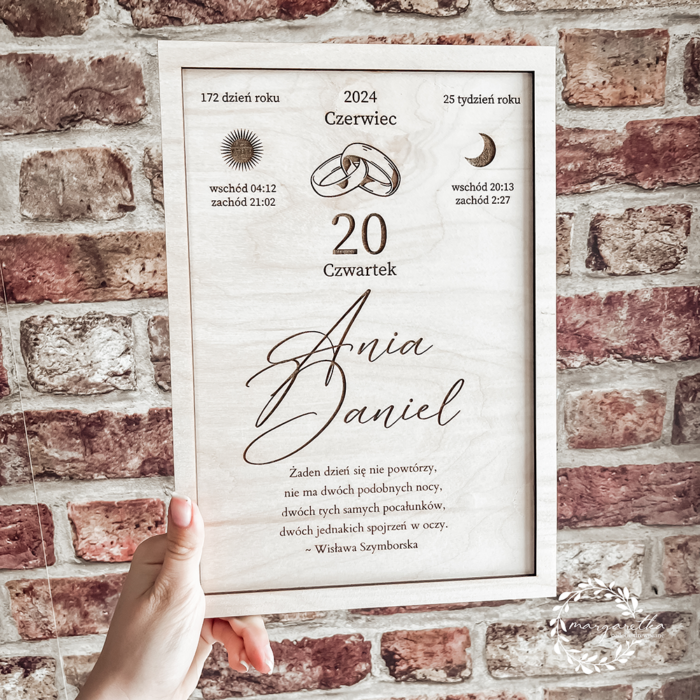 172 dzień roku
2024
Czerwiec
25 tydzień roku
wschód 04:12
zachód 21:02
wschód 20:13
zachód 2:27
20
Czwartek
Ania
Daniel
Żaden dzień się nie powtórzy,
nie ma dwóch podobnych nocy,
dwóch tych samych pocałunków,
dwóch jednakich spojrzeń w oczy.
~ Wisława Szymborska
margaretka